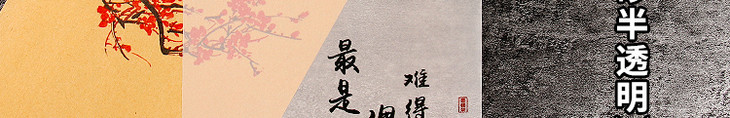 半透明
难得
最是